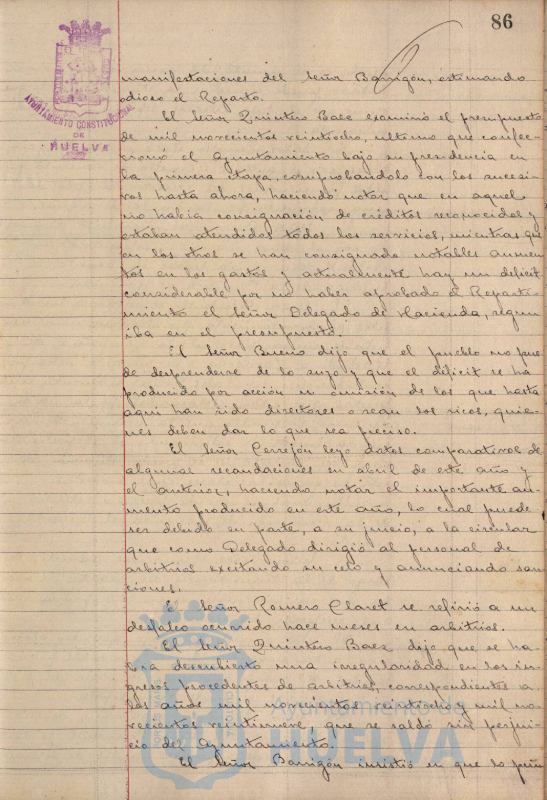 86
AYUNTAMIENTO CONSTITUCIONAL
DE
HUELVA
manifestaciones del Señor Barrigón, estimando
odioso el Reparto.
El Señor Quintero Baez examinó el presupuesto
de mil novecientos veintiocho, ultimo que confec-
cionó el Ayuntamiento bajo su presidencia en
la primera etapa, comprobandolo con los sucesi-
vos hasta ahora, haciendo notar que en aquel
no habia consignación de créditos reconocidos y
estaban atendidos todos los servicios, mientras que
en los otros se han consignado notables aumen-
tos en los gastos y actualmente hay un deficit
considerable por no haber aprobado el Reparti-
miento el Señor Delegado de Hacienda, segun
iba en el presupuesto.
El Señor Bueno dijo que el pueblo no pue-
de desprenderse de lo suyo y que el déficit se ha
producido por acción u omisión de los que hasta
aquí han sido directores o sean los ricos, quie-
nes deben dar lo que sea preciso.
El Señor Cerrejón leyó datos comparativos de
algunas recaudaciones en abril de este año y
el anterior, haciendo notar el importante au-
mento producido en este año, lo cual puede
ser debido en parte, a su juicio, a la circular
que como Delegado dirigió al personal de
arbitrios excitando su celo y anunciando san-
ciones.
El Señor Romero Claret se refirió a un
desfalco ocurrido hace meses en arbitrios.
El Señor Quintero Baez dijo que se ha-
bia descubierto una irregularidad en los in-
gresos procedentes de arbitrios, correspondientes a
los años mil novecientos veintiocho y mil no-
vecientos veintinueve, que se saldó sin perjui-
cio del Ayuntamiento.
El Señor Barrigón insistió en que lo
Ayuntamiento de
HUELVA